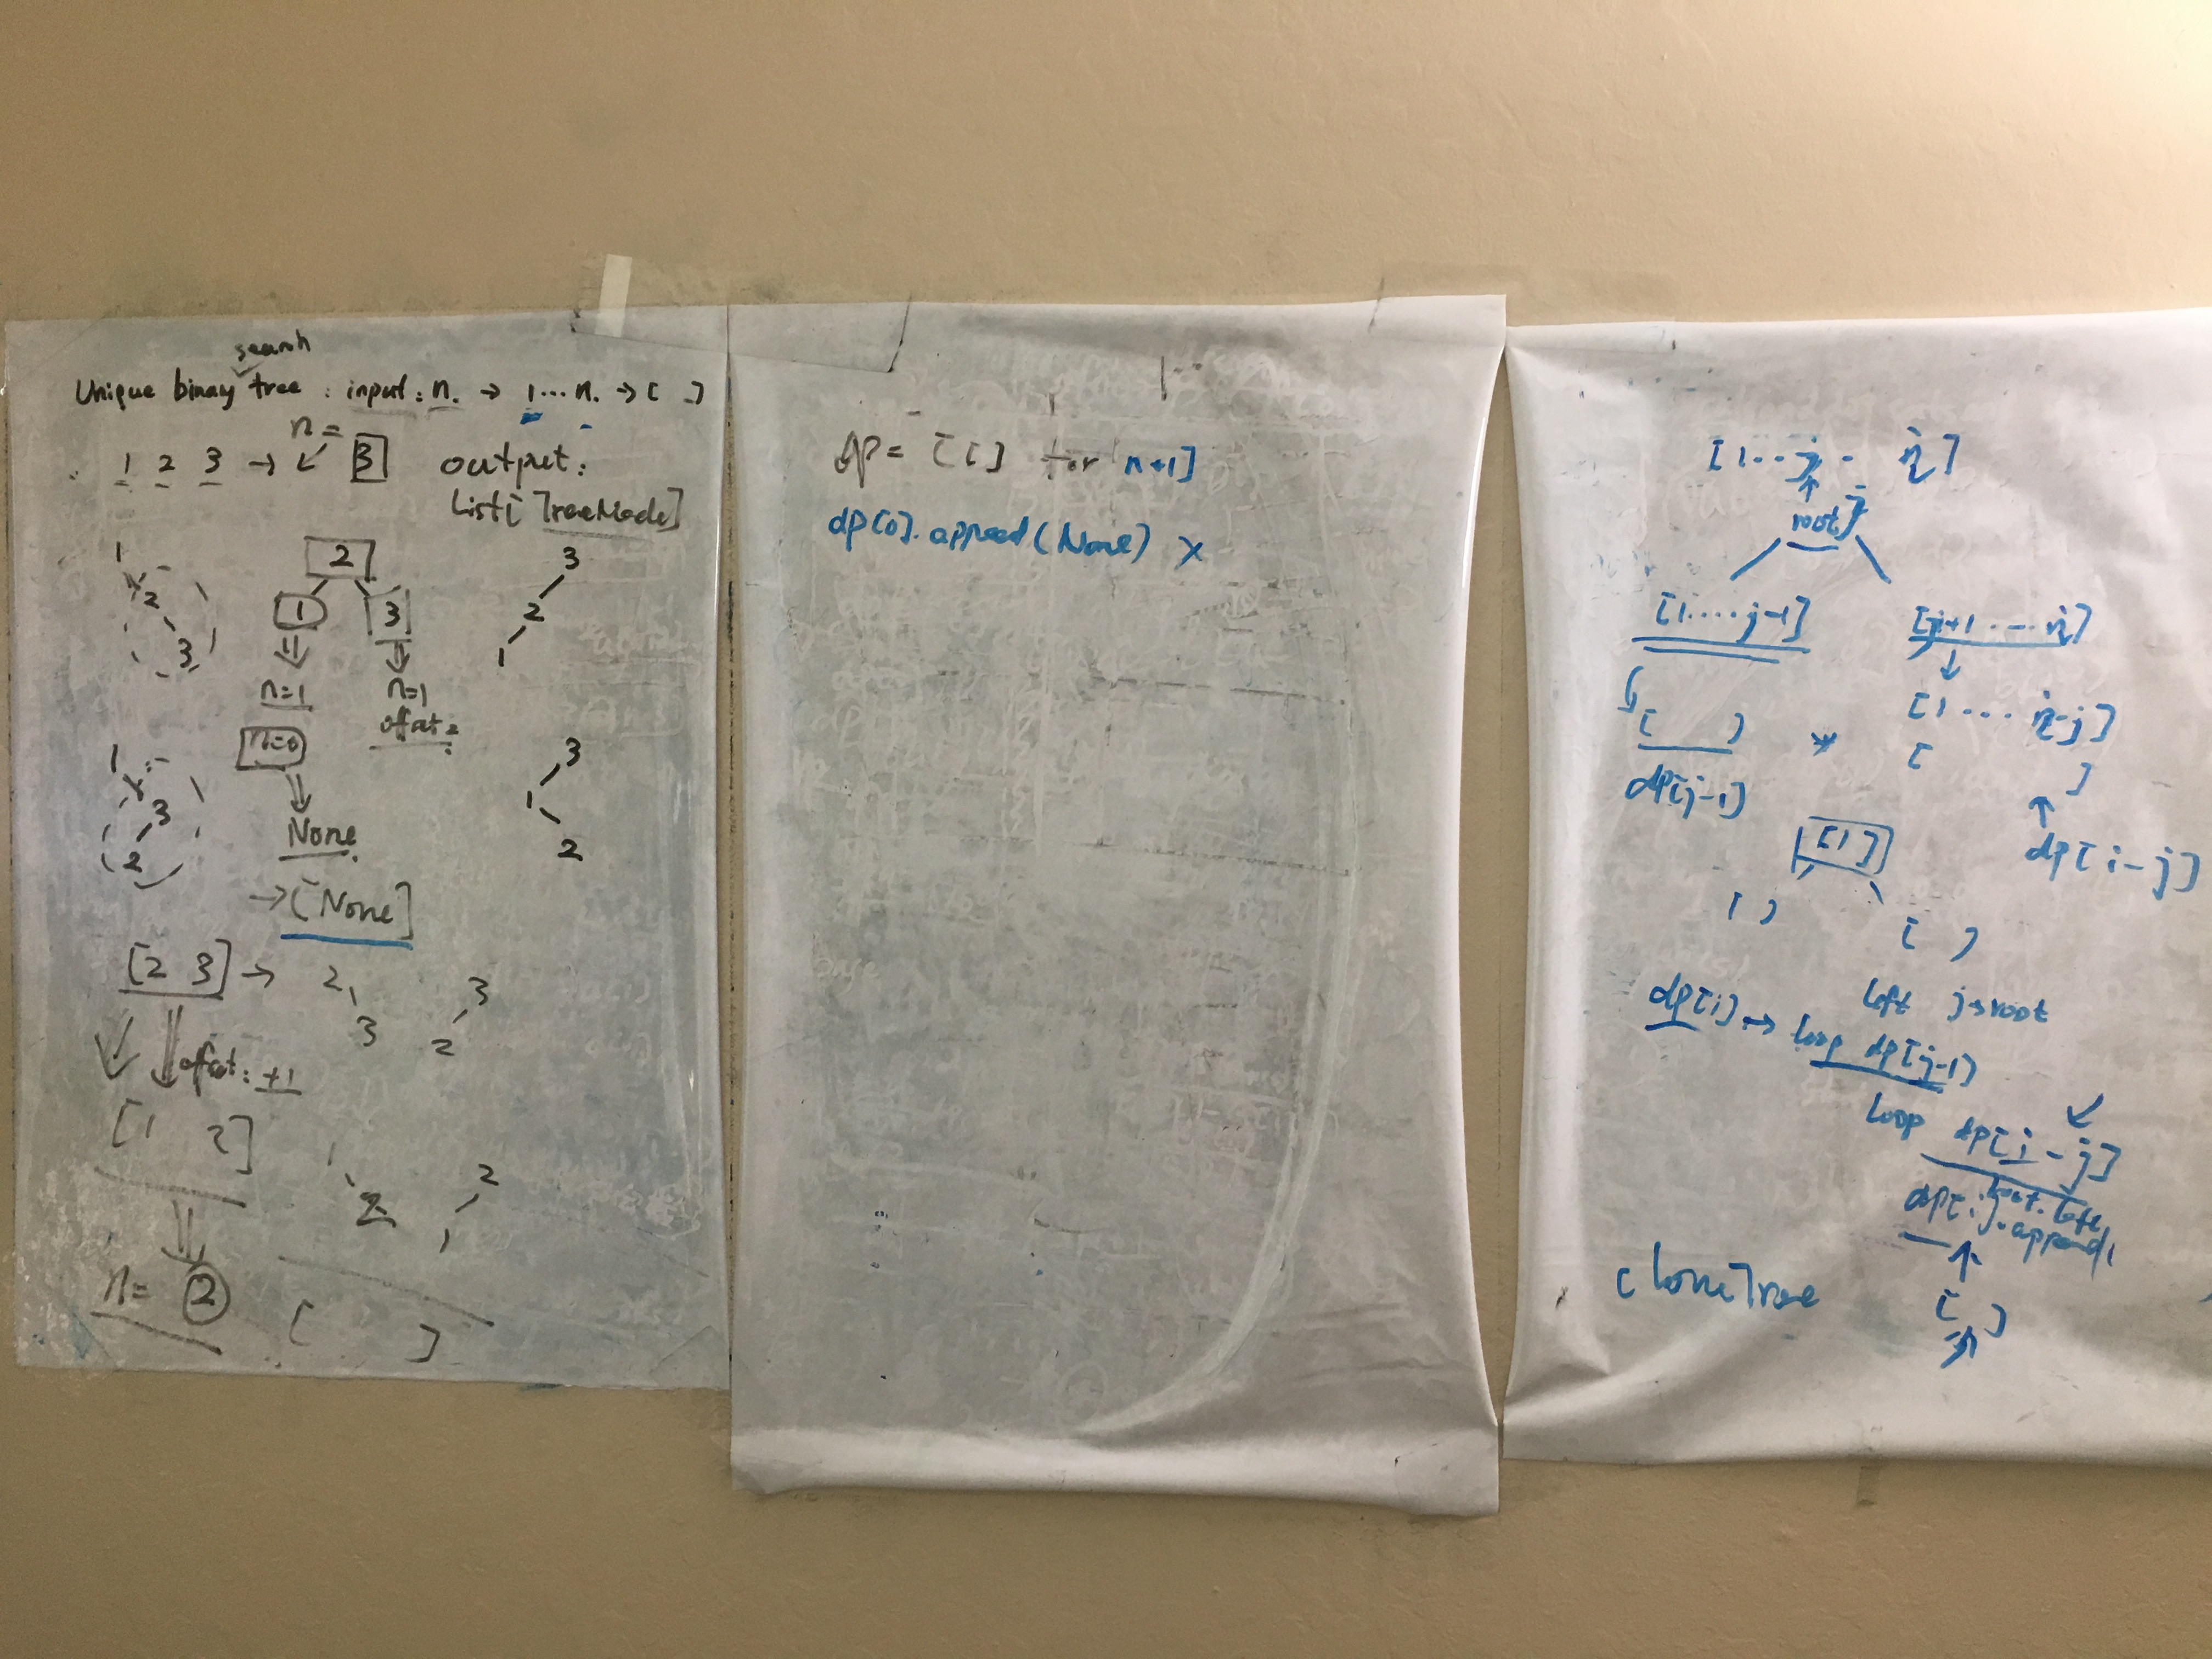 search
Unique binary tree : input : n. → 1...n. → [ ]
n =
1 2 3 → 3
output:
List[TreeNode]
1
2
3
2
1 3
n=1 n=1
offset:
n=0
None
→[None]
3
2
1
1
3
2
3
1
2
[2 3] →
2
3
3
2
offset: +1
[1 2]
1
2
2
1
n= 2 [ ]
dp = [[] for n+1]
dp[0].append(None) x
[1..j. i]
↑
root j
[1....j-1] [j+1....i]
↓
[ ] * [1... i-j]
[ ]
dp[j-1] ↑
dp[i-j]
[1]
[ ] [ ]
left j→root
dp[i] → loop dp[j-1]
loop dp[i-j]
root.left
dp[i].append(
↑
cloneTree [ ]